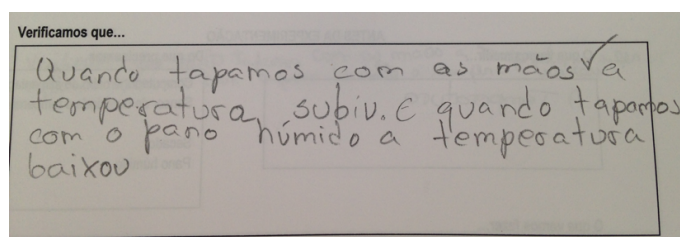 Verificamos que...
Quando tapamos com as mãos a
temperatura subiu. E quando tapamos
com o pano húmido a temperatura
baixou